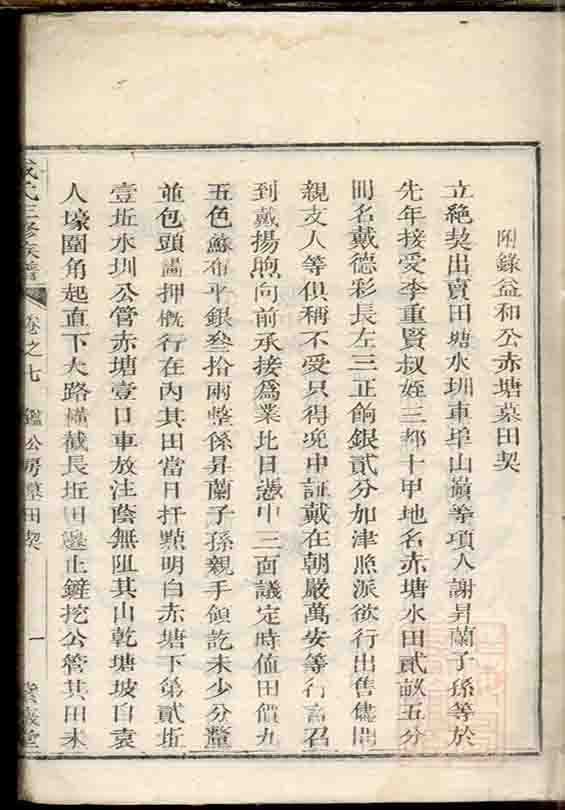 附錄益和公赤塘墓田契
立絶契出賣田塘水圳車埠山嶺等項人謝昇蘭子孫等於
先年接受李重賢叔姪三都十甲地名赤塘水田貳畝五分
冊名戴德彩長左三正餉銀貳分加津照派欲行出售儘問
親支人等俱稱不受只得浼中証戴在朝嚴萬安等行言召
到戴揚煦向前承接為業比日憑中三面議定時値田價九
五色蘇布平銀叁拾兩整係昇蘭子孫親手領訖未少分釐
並包頭畵押概行在內其田當日扦點明白赤塘下第貳坵
壹坵水圳公管赤塘壹口車放注蔭無阻其山乾塘坡自袁
人壕圍角起直下大路橫截長坵田邊止鏟挖公管其田未
氏三修族譜
卷之七 鑑公房墓田契 一